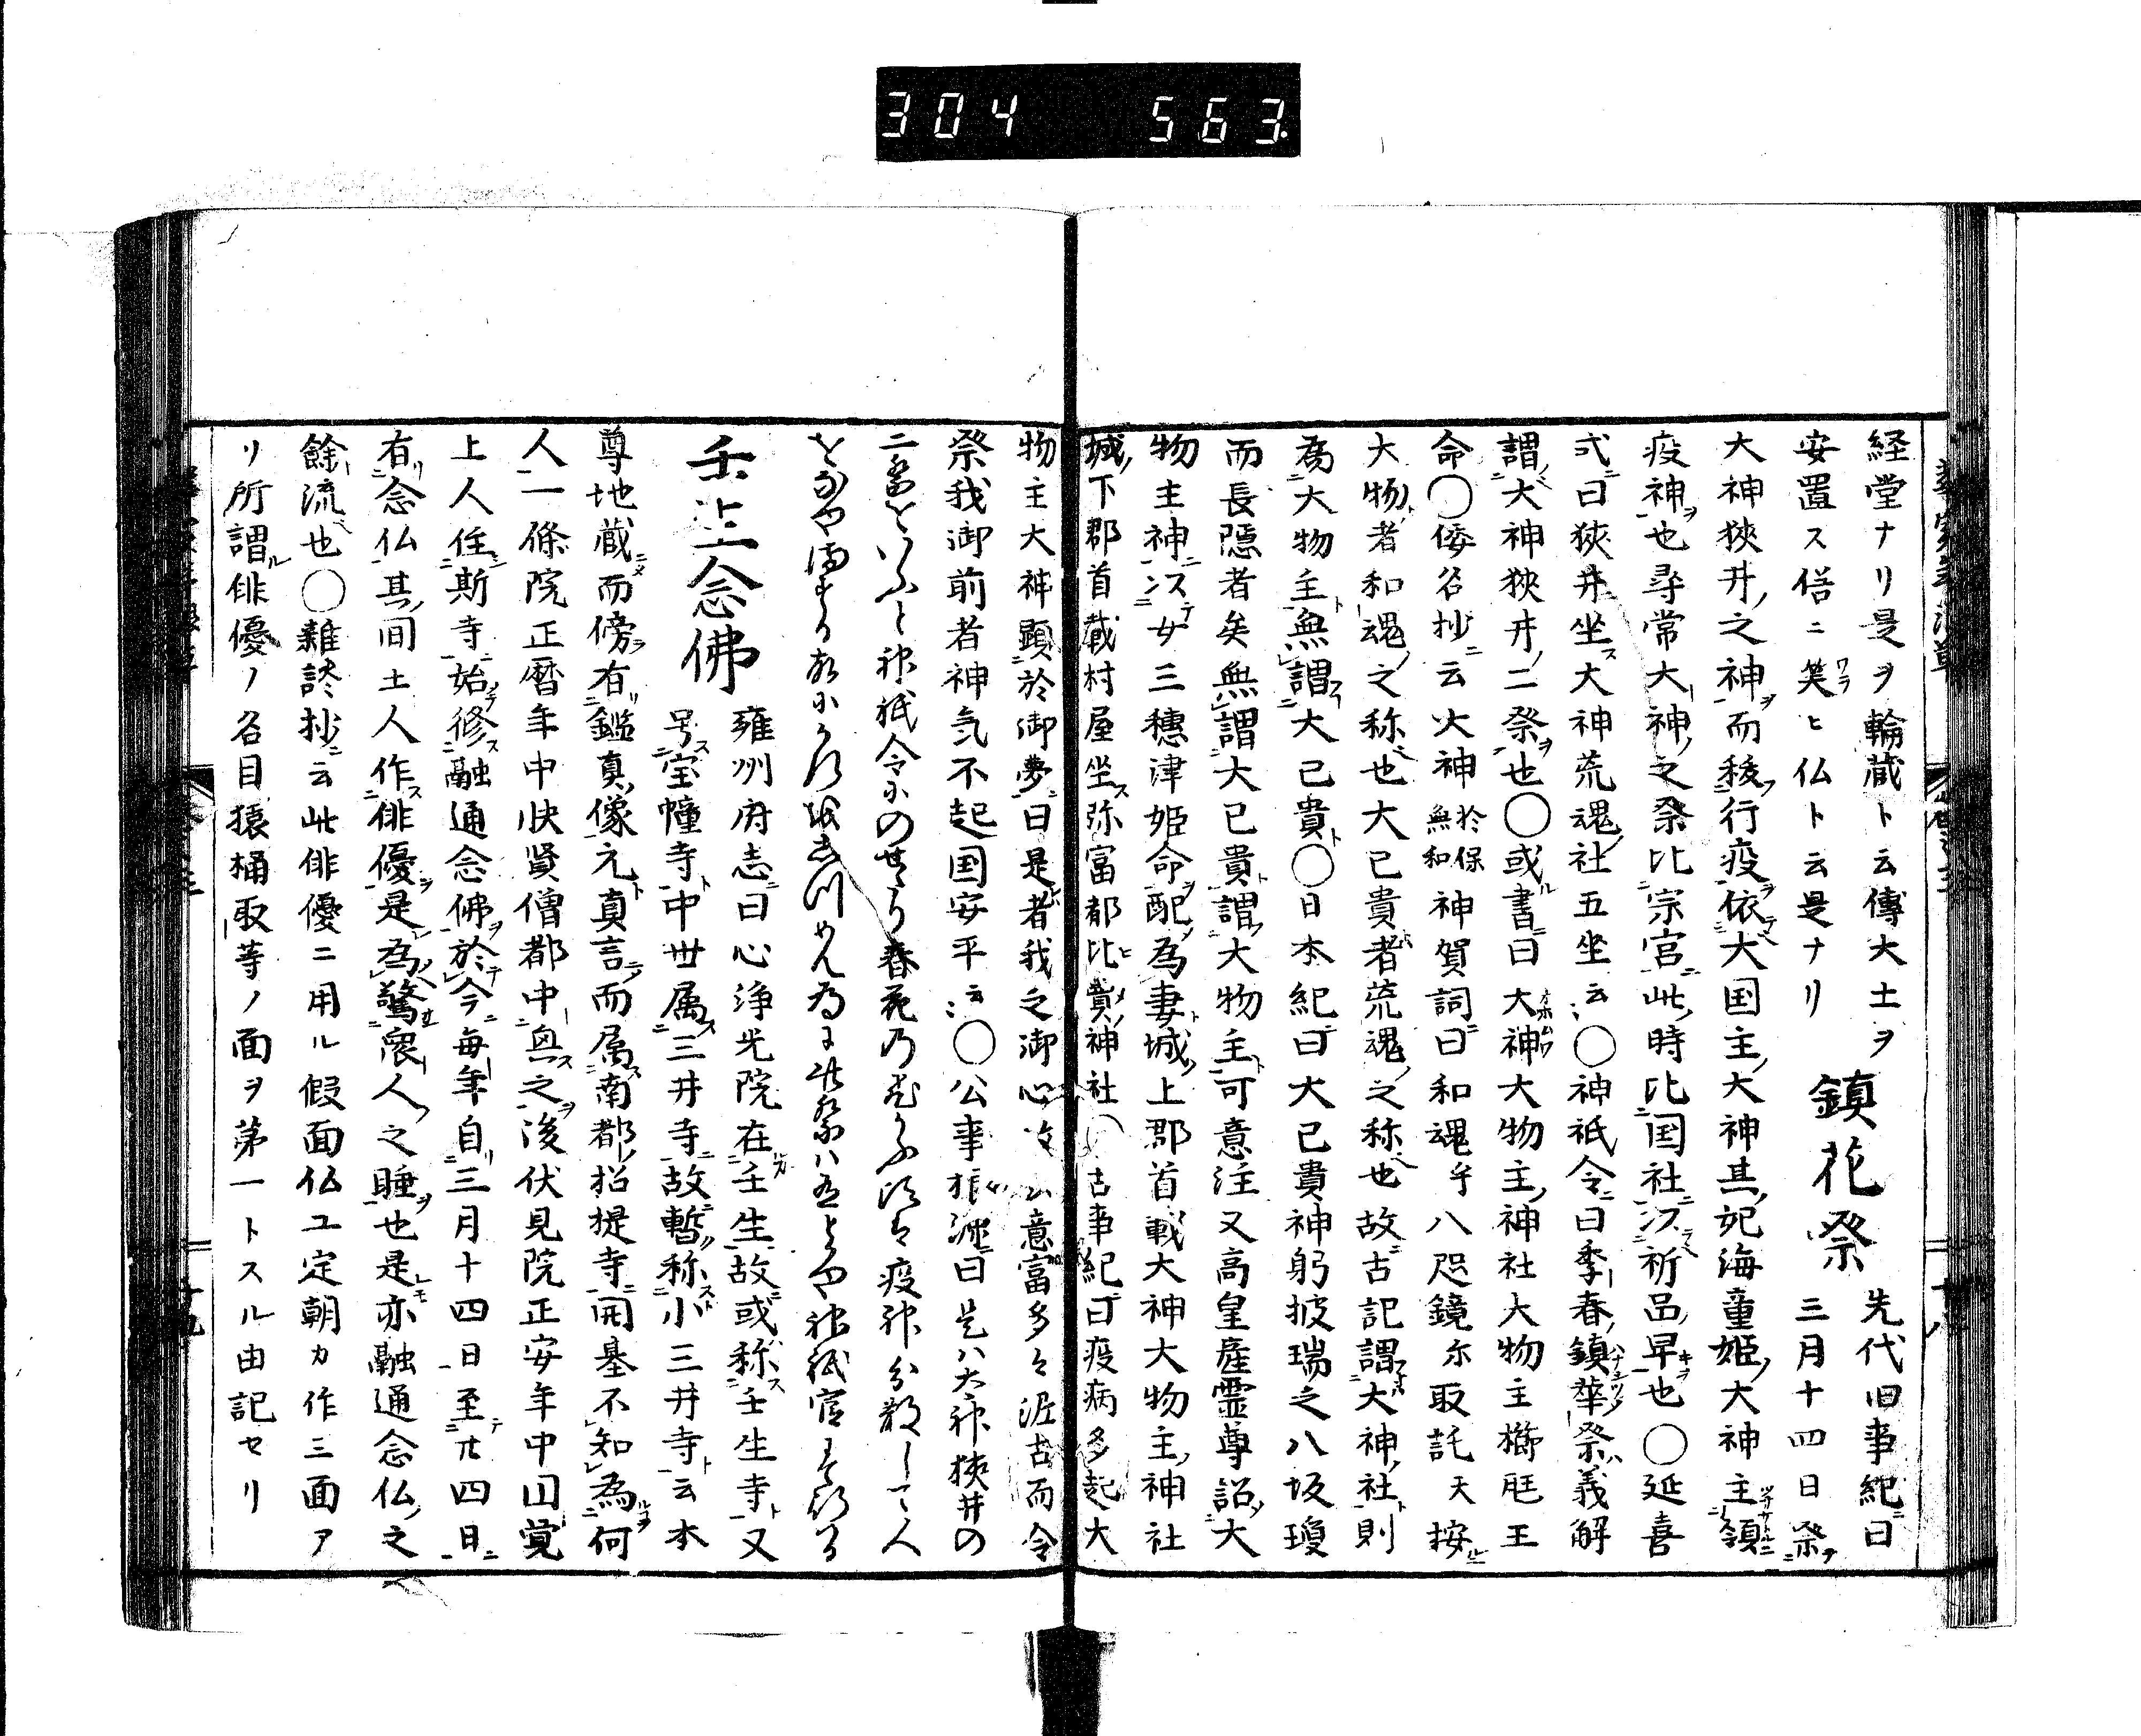 304 563
経堂ナリ是ヲ輪蔵ト云傳大士ヲ
安置ス俗ニ笑ヒ仏ト云是ナリ
鎮花祭
先代旧事紀曰
三月十四日祭
大神狹井之神而移行疫依大国主大神其妃海童姫大神主領
疫神也尋常大神之祭比宗宮此時比国社次祈品早也〇延喜
式曰狹井坐大神荒魂社五坐云〻〇神祇令曰季春鎮華祭義解
謂大神狹井二祭也〇或書曰大神大物主神社大物主櫛𤭖玉
命〇倭名抄云火神於保無和神賀詞曰和魂乎八咫鏡尓取託天按
大物者和魂之称也大己貴者荒魂之称也故古記謂大神社則
為大物主無謂大己貴〇日本紀曰大己貴神躬披瑞之八坂瓊
而長隠者矣無謂大己貴謂大物主可意注又高皇産霊尊詔大
物主神次女三穂津姫命配為妻城上郡首載大神大物主神社
城下郡首載村屋坐弥富都比賣神社〇古事紀曰疫病多起大
物主大神顕於御夢曰是者我之御心以意富多々泥古而令
祭我御前者神気不起国安平云〻〇公事根源曰是ハ大神狹井の
二祭をいふと神祇令にのせたり春花の飛ちる頃は疫神分散して人
をなやます故に此祭は有とや神祇官
壬生念佛
雍州府志曰心浄光院在壬生故或称壬生寺又
号宝幢寺中世属三井寺故暫称小三井寺云本
尊地蔵而傍有鑑真像元真言而属南都招提寺開基不知為何
人一條院正暦年中快賢僧都中興之後伏見院正安年中円覚
上人住斯寺始修融通念佛於今毎年自三月十四日至廿四日
有念仏其間土人作俳優是為驚衆人之睡也是亦融通念仏之
餘流也〇雜談抄云此俳優ニ用ル假面仏工定朝カ作三面ア
リ所謂俳優ノ名目猿桶取等ノ面ヲ第一トスル由記セリ